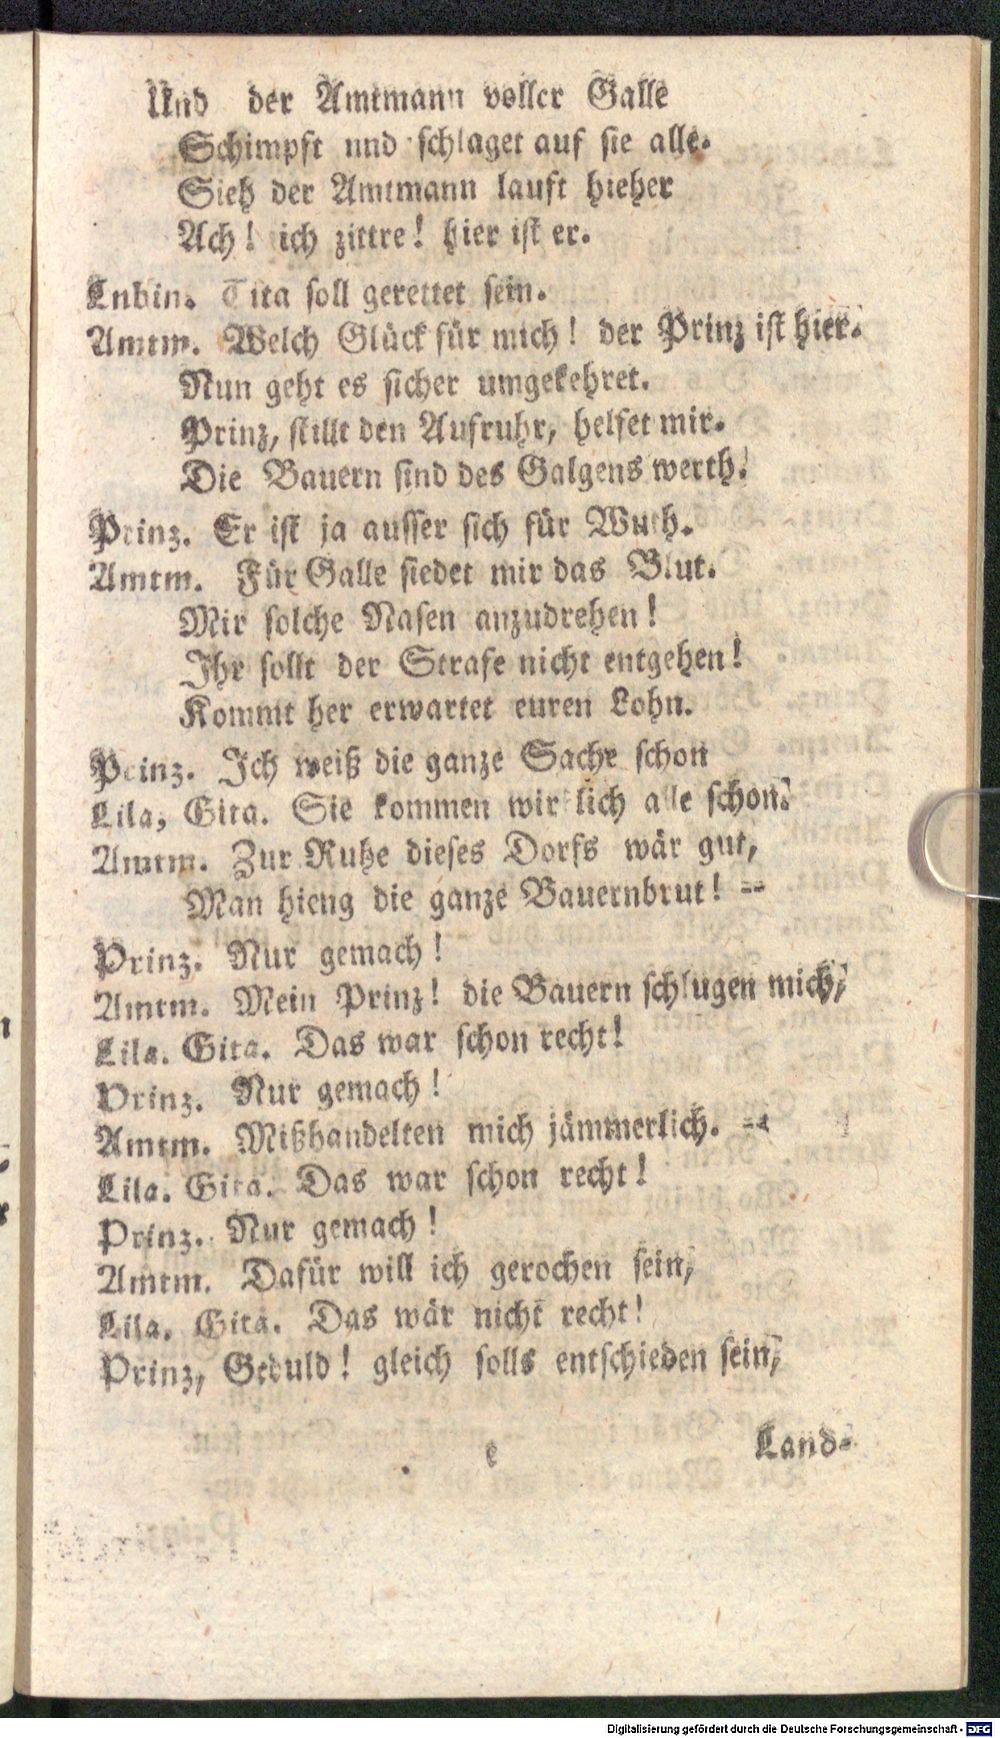 Und der Amtmann voller Galle
Schimpft und schlaget auf sie alle.
Sieh der Amtmann lauft hieher
Ach! ich zittre! hier ist er.
Lubin. Tita soll gerettet sein.
Amtm. Welch Glück für mich! der Prinz ist hier.
Nun geht es sicher umgekehret.
Prinz, stillt den Aufruhr, helfet mir.
Die Bauern sind des Galgens werth!
Prinz. Er ist ja ausser sich für Wuth.
Amtm. Für Galle siedet mir das Blut.
Mir solche Nasen anzudrehen!
Ihr sollt der Strafe nicht entgehen!
Kommt her erwartet euren Lohn.
Prinz. Ich weiß die ganze Sache schon
Lila, Gita. Sie kommen wirklich alle schon.
Amtm. Zur Ruhe dieses Dorfs wär gut,
Man hieng die ganze Bauernbrut! --
Prinz. Nur gemach!
Amtm. Mein Prinz! die Bauern schlugen mich,
Lila. Gita. Das war schon recht!
Prinz. Nur gemach!
Amtm. Mißhandelten mich jämmerlich. --
Lila. Gita. Das war schon recht!
Prinz. Nur gemach!
Amtm. Dafür will ich gerochen sein,
Lila. Gita. Das wär nicht recht!
Prinz, Geduld! gleich solls entschieden sein,
e Land-
Digitalisierung gefördert durch die Deutsche Forschungsgemeinschaft - DFG